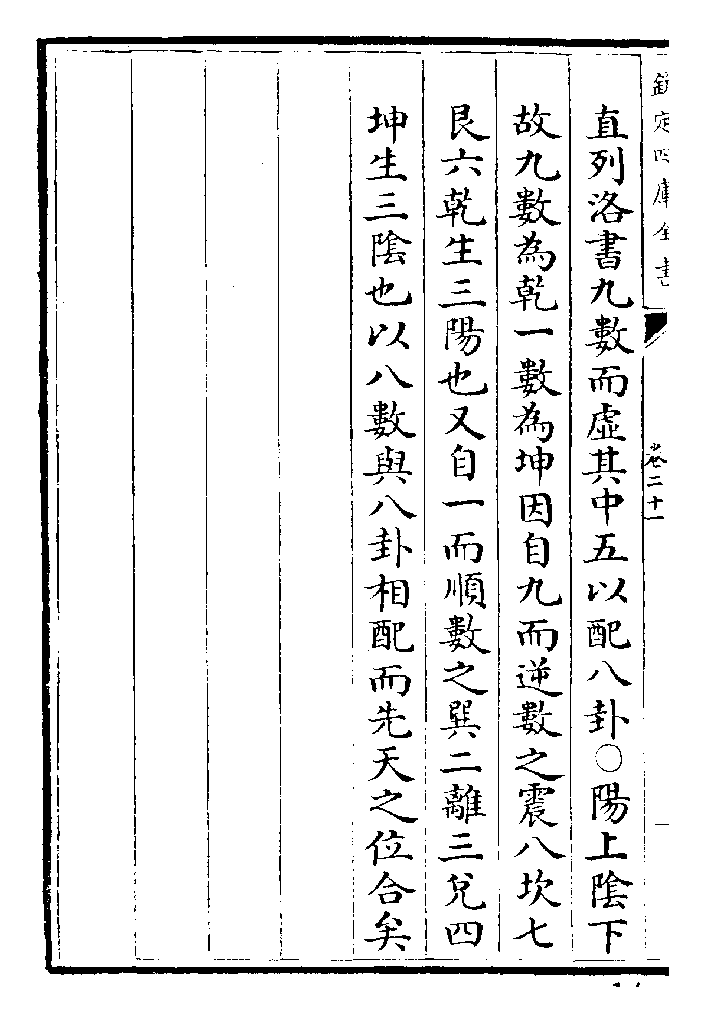 欽定四庫全書
卷二十一
直列洛書九數而虛其中五以配八卦○陽上陰下
故九數為乾一數為坤因自九而逆數之震八坎七
艮六乾生三陽也又自一而順數之巽二離三兌四
坤生三陰也以八數與八卦相配而先天之位合矣